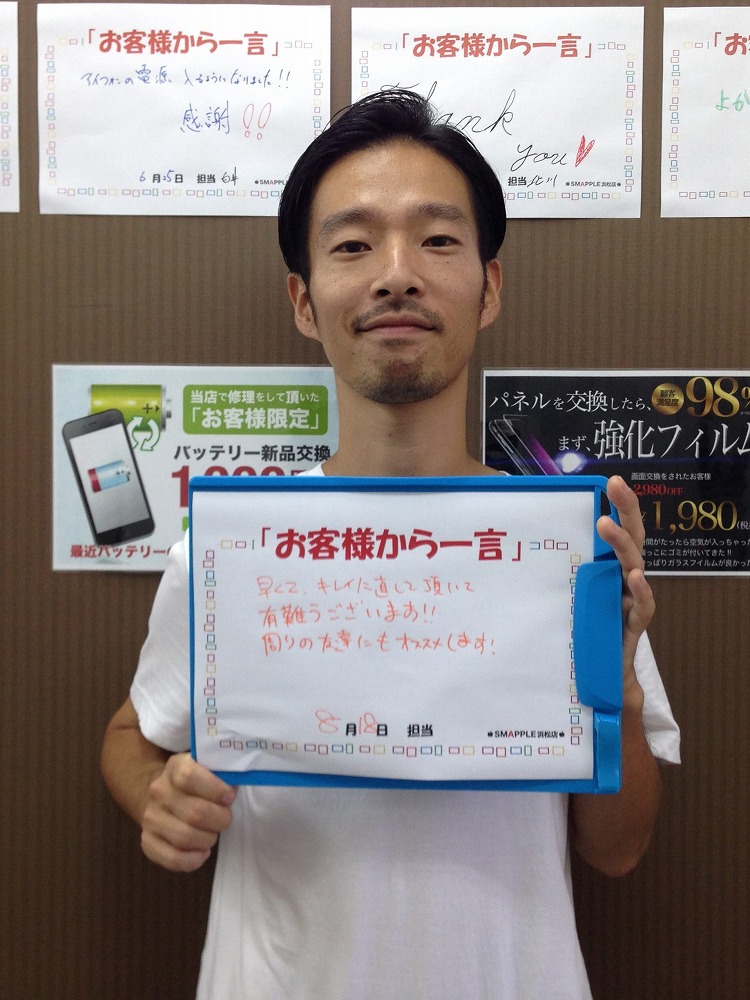 「お客様から一言」
アイフォンの電源、入るようになりました!!
感謝!!
6月25日 担当
SMAPPLE
「お客様から一言」
Thank
you
担当 北川
SMAPPLE浜松店
「お
よか
当店で修理をして頂いた
「お客様限定」
バッテリー新品交換
最近バッテリー
パネルを交換したら、
顧客
満足度
98%
まず、強化フィルム
画面交換をされたお客様
2980OFF
1,980(税
時間がたったら空気が入っちゃった
っこにゴミが付いてきた!!
っぱりガラスフイルムが良かった
「お客様から一言」
早くて、キレイに直して頂いて
有難うございます!!
周りの友達にもオススメします!
8月18日 担当
SMAPPLE浜松店